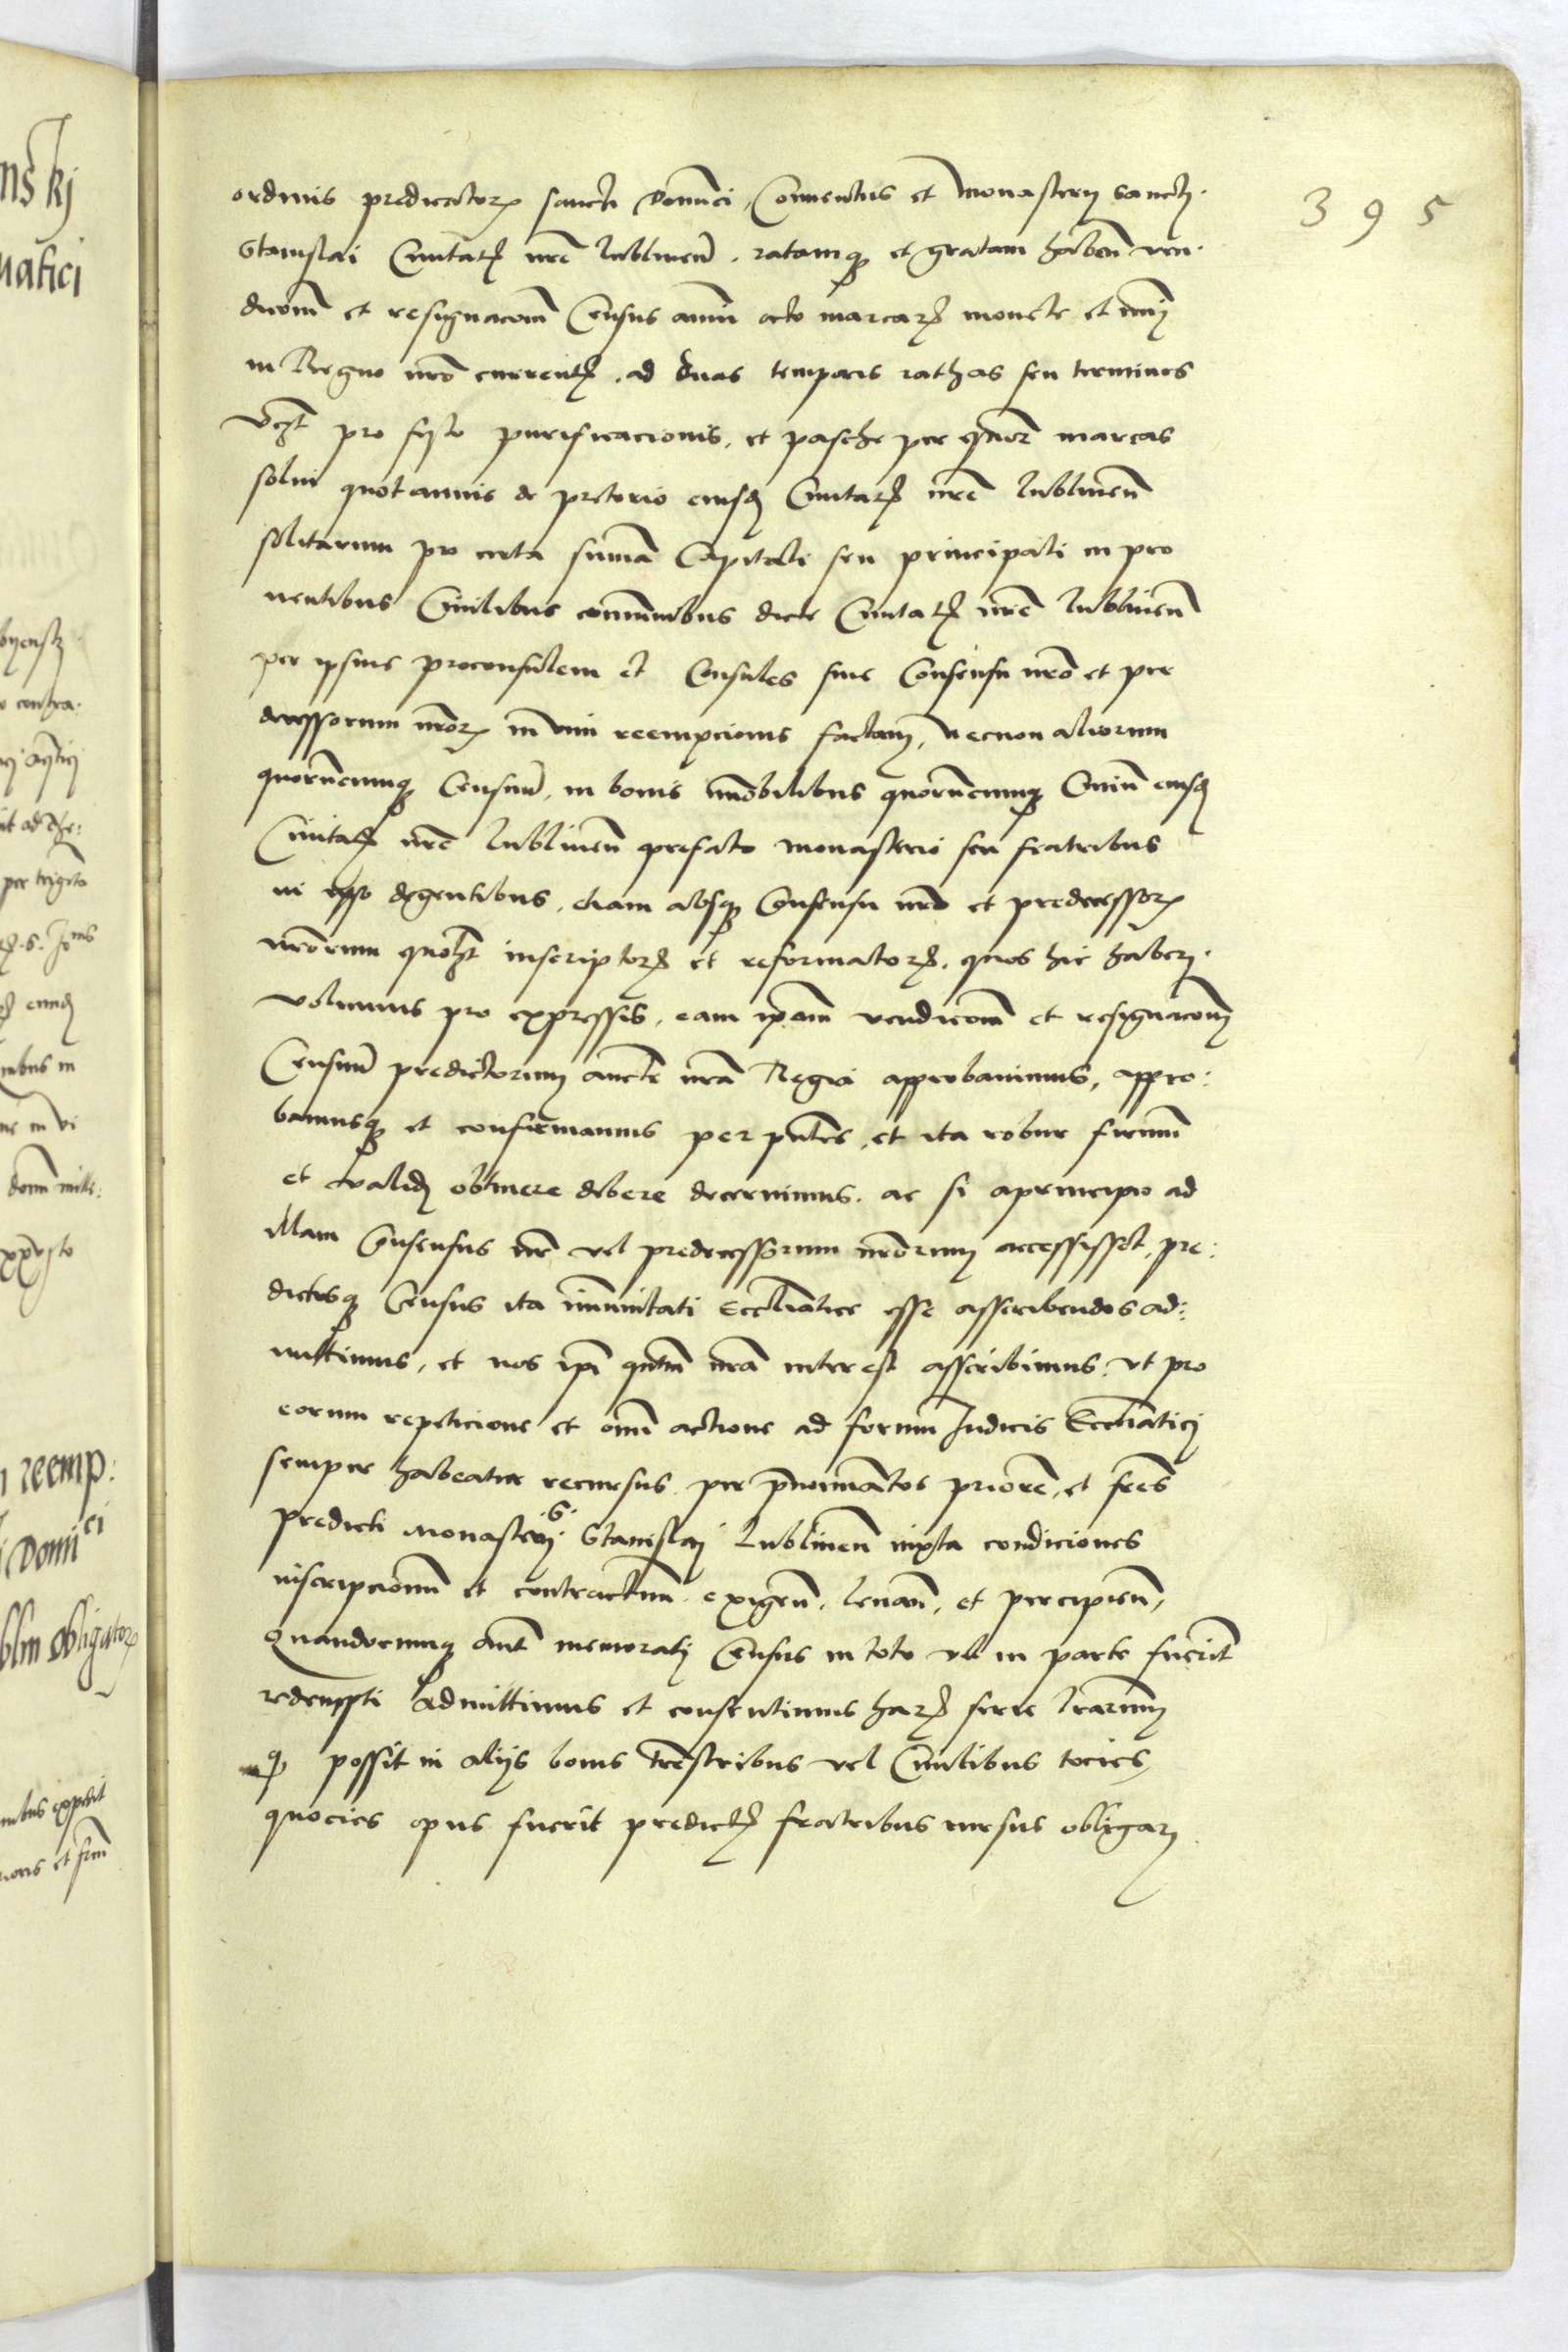 395
ordinis predicatorꝝ sancti Dominici, Conventus et Monasterij sancti
Stanislai Civitatꝭ nr̃e Lublinen̄. ratamqꝫ et gratam haben̄ ven
dicōm̄ et resignacōm̄ Census annui octo marcarꝝ monete et
in Regno nr̃o currentꝭ. ad duas temporis rathas seu terminos
vcꝫt pro festo purificacionis, et pasche per q̃tuor marcas
solui quotannis de pretorio eiusdꝫ Civitatꝭ nr̃e Lublinen̄
solitarum pro certa sum̄a Capitali seu principali in pro
ventibus Civilibus communibus dicte Civitatꝭ nr̃e Lublinen̄
per ipsius proconsulem et Consules sine Consensu nr̃o et pre
decessorum nr̃orꝝ in vim reempcionis factam, necnon aliorum
quorūcumqꝫ Censuū, in bonis im̄obilibus quorūcumqꝫ Civiū eiusdꝫ
Civitatꝭ nr̃e Lublinen̄ prefato monasterio seu fratribus
in ipso degentibus, etiam absqꝫ Consensu nr̃o et predecessorꝝ
nr̃orum quoꝫt inscriptorꝝ et reformatorꝝ, quos hic haberj
volumus pro expressis, eam ip̄am vendicōm̄ et resignacōm̄
Censuū predictorum aucte nr̃a Regia approbavimus, appro:
bamusqꝫ et confirmamus per pn̄tes, et ita robur firmū
et validꝫ obtinere debere decernimus. ac si aprincipio ad
illam Consensus nr̃ vel predecessorum nr̃orum accessisset, pre:
dictosqꝫ Census ita im̄unitati Eccl̄iastice esse asscribendos ad:
mittimus, et nos ip̄i q̃ntū nr̃a interest asscribimus. vt pro
eorum repeticione et om̄i actione ad forum Judicis Eccl̄iasticj
semper habeatur recursus per p̄nominatos priorē, et fr̃es
predicti Monasterij .S. Stanislaj Lublinen̄ iuxta condiciones
inscripcionū et contractuū. exigen̄. levan̄. et percipien̄,
Quandocumqꝫ aut̄ memoratj Census in toto vel in parte fuerint
redempti admittimus et consentimus harꝝ serie lr̄arum
qꝫ possit in alijs bonis terrēstribus vel Civilibus tocies,
quocies opus fuerit predictꝭ fratribus rursus obligarj